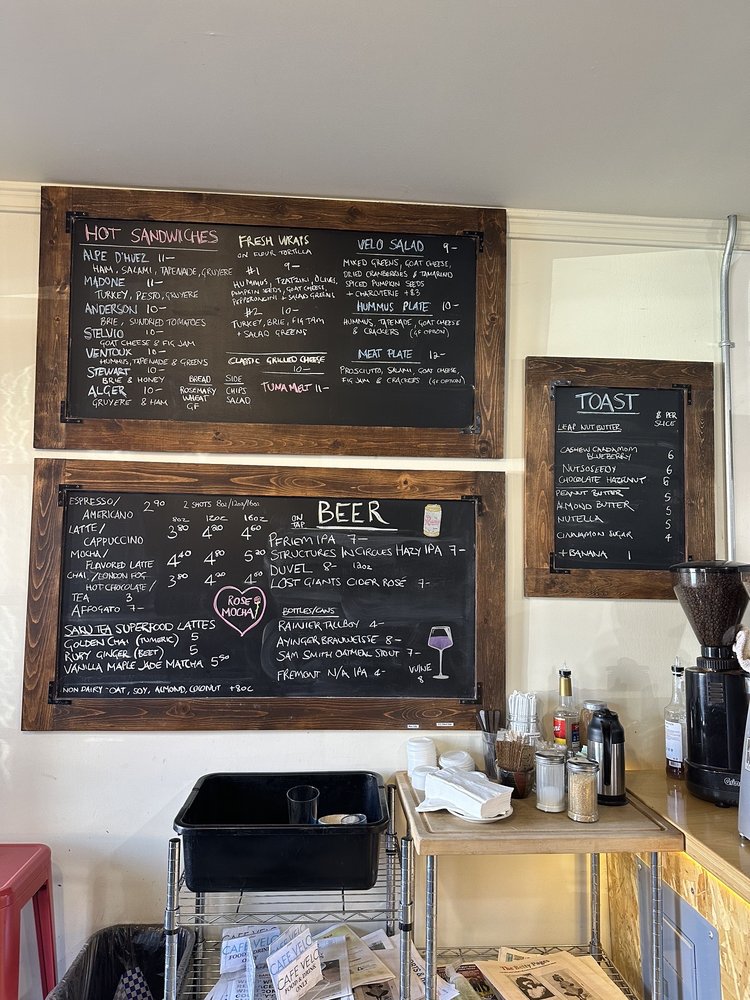 HOT SANDWICHES
ALPE D'HUEZ 11-
HAM, SALAMI, TAPENADE, GRUYERE
MADONE 11-
TURKEY, PESTO, GRUYERE
ANDERSON 10-
BRIE, SUNDRIED TOMATOES
STELVIO 10-
GOAT CHEESE & FIG JAM
VENTOUX 10-
HUMMUS, TAPENADE & GREENS
STEWART 10-
BRIE & HONEY
ALGER 10-
GRUYERE & HAM
BREAD
ROSEMARY
WHEAT
GF
SIDE
CHIPS
SALAD
FRESH WRAPS
ON FLOUR TORTILLA
#1 9-
HUMMUS, TZATZIKI, OLIVES,
PUMPKIN SEEDS, GOAT CHEESE,
PEPPERONCINI & SALAD GREENS
#2 10-
TURKEY, BRIE, FIG JAM
+ SALAD GREENS
CLASSIC GRILLED CHEESE
10-
TUNA MELT 11-
VELO SALAD 9-
MIXED GREENS, GOAT CHEESE,
DRIED CRANBERRIES & TAMARIND
SPICED PUMPKIN SEEDS
+ CHARCUTERIE +$3
HUMMUS PLATE 10-
HUMMUS, TAPENADE, GOAT CHEESE
& CRACKERS (GF OPTION)
MEAT PLATE 12-
PROSCIUTTO, SALAMI, GOAT CHEESE,
FIG JAM & CRACKERS (GF OPTION)
TOAST
$ PER
SLICE
LEAP NUT BUTTER
CASHEW CARDAMOM
BLUEBERRY 6
NUTSOSEEDY 6
CHOCOLATE HAZELNUT 6
PEANUT BUTTER 5
ALMOND BUTTER 5
NUTELLA 5
CINNAMON SUGAR 4
+ BANANA 1
ESPRESSO/
AMERICANO 2.90 2 SHOTS 8oz/12oz/16oz
8oz 12oz 16oz
LATTE/
CAPPUCCINO 3.80 4.20 4.60
MOCHA/
FLAVORED LATTE 4.40 4.80 5.20
CHAI/LONDON FOG
HOT CHOCOLATE/ 3.80 4.20 4.60
TEA 3
AFFOGATO 7-
ROSE
MOCHA!
SAKU TEA SUPERFOOD LATTES
GOLDEN CHAI (TUMERIC) 5
RUBY GINGER (BEET) 5
VANILLA MAPLE JADE MATCHA 5.50
NON DAIRY - OAT, SOY, ALMOND, COCONUT +80¢
ON
TAP
BEER
PFRIEM IPA 7-
STRUCTURES IN CIRCLES HAZY IPA 7-
DUVEL 8- 12oz
LOST GIANTS CIDER ROSÉ 7-
BOTTLES/CANS
RAINIER TALLBOY 4-
AYINGER BRAUWEISSE 8-
SAM SMITH OATMEAL STOUT 7-
FREMONT N/A IPA 4-
WINE
8
CAFE VELO
CAFE VELO
FOOD & DRINK
ONLY
The Betty Pages